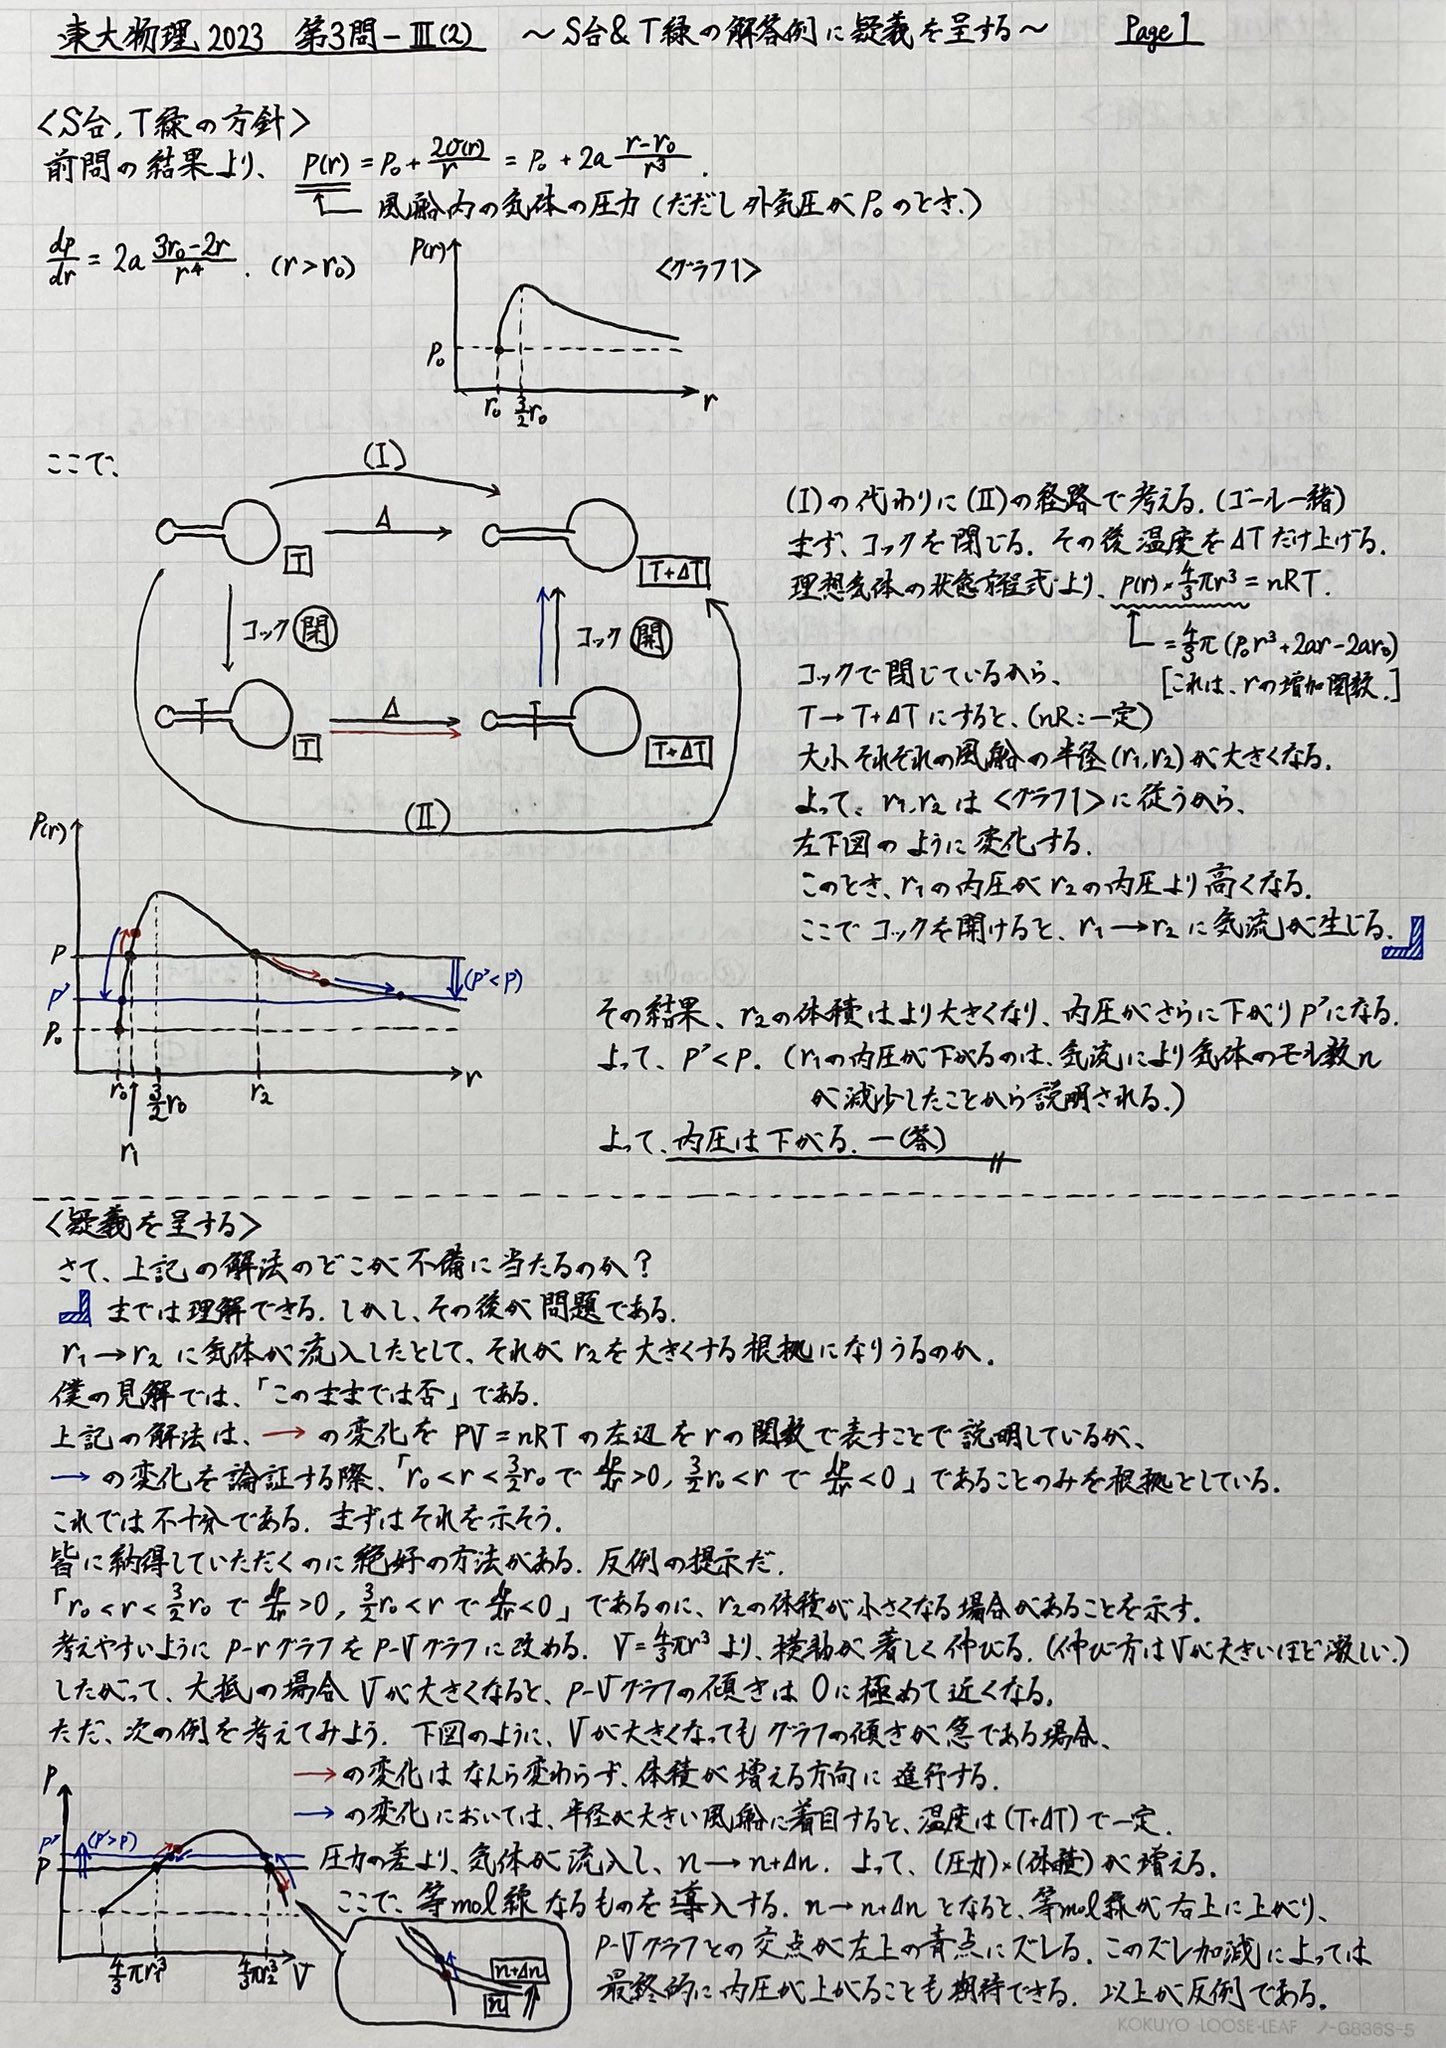 東大物理 2023 第3問-Ⅲ(2) ～S台&T緑の解答例に疑義を呈する～ Page 1
<S台,T緑の方針>
前問の結果より、 p(r) = p₀ + 2σ(r)/r = p₀ + 2a (r-r₀)/r³ .
風船内の気体の圧力 (ただし外気圧がp₀のとき.)
dp/dr = 2a (3r₀-2r)/r⁴ . (r>r₀)
p(r) <グラフ1>
p₀
r₀ 3/2 r₀ r
ここで、
(Ⅰ)
Δ
T T+ΔT
コック閉 コック開
Δ
T T+ΔT
(Ⅱ)
(Ⅰ)の代わりに(Ⅱ)の経路で考える. (ゴール一緒)
まず、コックを閉じる. その後温度をΔTだけ上げる.
理想気体の状態方程式より、p(r)×4/3πr³ = nRT.
= 4/3π(p₀r³+2ar-2ar₀)
[これは、rの増加関数.]
コックで閉じているから、
T→T+ΔTにすると、(nR:一定)
大小それぞれの風船の半径(r₁,r₂)が大きくなる.
よって、r₁,r₂は<グラフ1>に従うから、
左下図のように変化する.
このとき、r₁の内圧がr₂の内圧より高くなる.
ここでコックを開けると、r₁→r₂に気流が生じる.
p(r)
p
p'
p₀
(p'<p)
r₀ 3/2 r₀ r₂ r
r₁
その結果、r₂の体積はより大きくなり、内圧がさらに下がりp'になる.
よって、p'<p. (r₁の内圧が下がるのは、気流により気体のモル数n
が減少したことから説明される.)
よって、内圧は下がる. ―(答)
<疑義を呈する>
さて、上記の解法のどこが不備に当たるのか?
までは理解できる. しかし、その後が問題である.
r₁→r₂に気体が流入したとして、それがr₂を大きくする根拠になりうるのか.
僕の見解では、「このままでは否」である.
上記の解法は、→の変化をPV=nRTの左辺をrの関数で表すことで説明しているが、
→の変化を論証する際、「r₀<r<3/2r₀でdp/dr>0, 3/2r₀<rでdp/dr<0」であることのみを根拠としている.
これでは不十分である. まずはそれを示そう.
皆に納得していただくのに絶好の方法がある. 反例の提示だ.
「r₀<r<3/2r₀でdp/dr>0, 3/2r₀<rでdp/dr<0」であるのに、r₂の体積が小さくなる場合があることを示す.
考えやすいようにp-rグラフをp-Vグラフに改める. V=4/3πr³より、横軸が著しく伸びる. (伸び方はVが大きいほど激しい.)
したがって、大抵の場合Vが大きくなると、p-Vグラフの傾きは0に極めて近くなる.
ただ、次の例を考えてみよう. 下図のように、Vが大きくなってもグラフの傾きが急である場合、
→の変化はなんら変わらず、体積が増える方向に進行する.
→の変化においては、半径が大きい風船に着目すると、温度は(T+ΔT)で一定.
圧力の差より、気体が流入し、n→n+Δn. よって、(圧力)×(体積)が増える.
ここで、等mol線なるものを導入する. n→n+Δnとなると、等mol線が右上に上がり、
p-Vグラフとの交点が左上の青点にズレる. このズレ加減によっては
最終的に内圧が上がることも期待できる. 以上が反例である.
p
p'
p
(p'>p)
4/3πr₁³ 4/3πr₂³ V
n+Δn
n
KOKUYO LOOSE-LEAF ノ-G836S-5